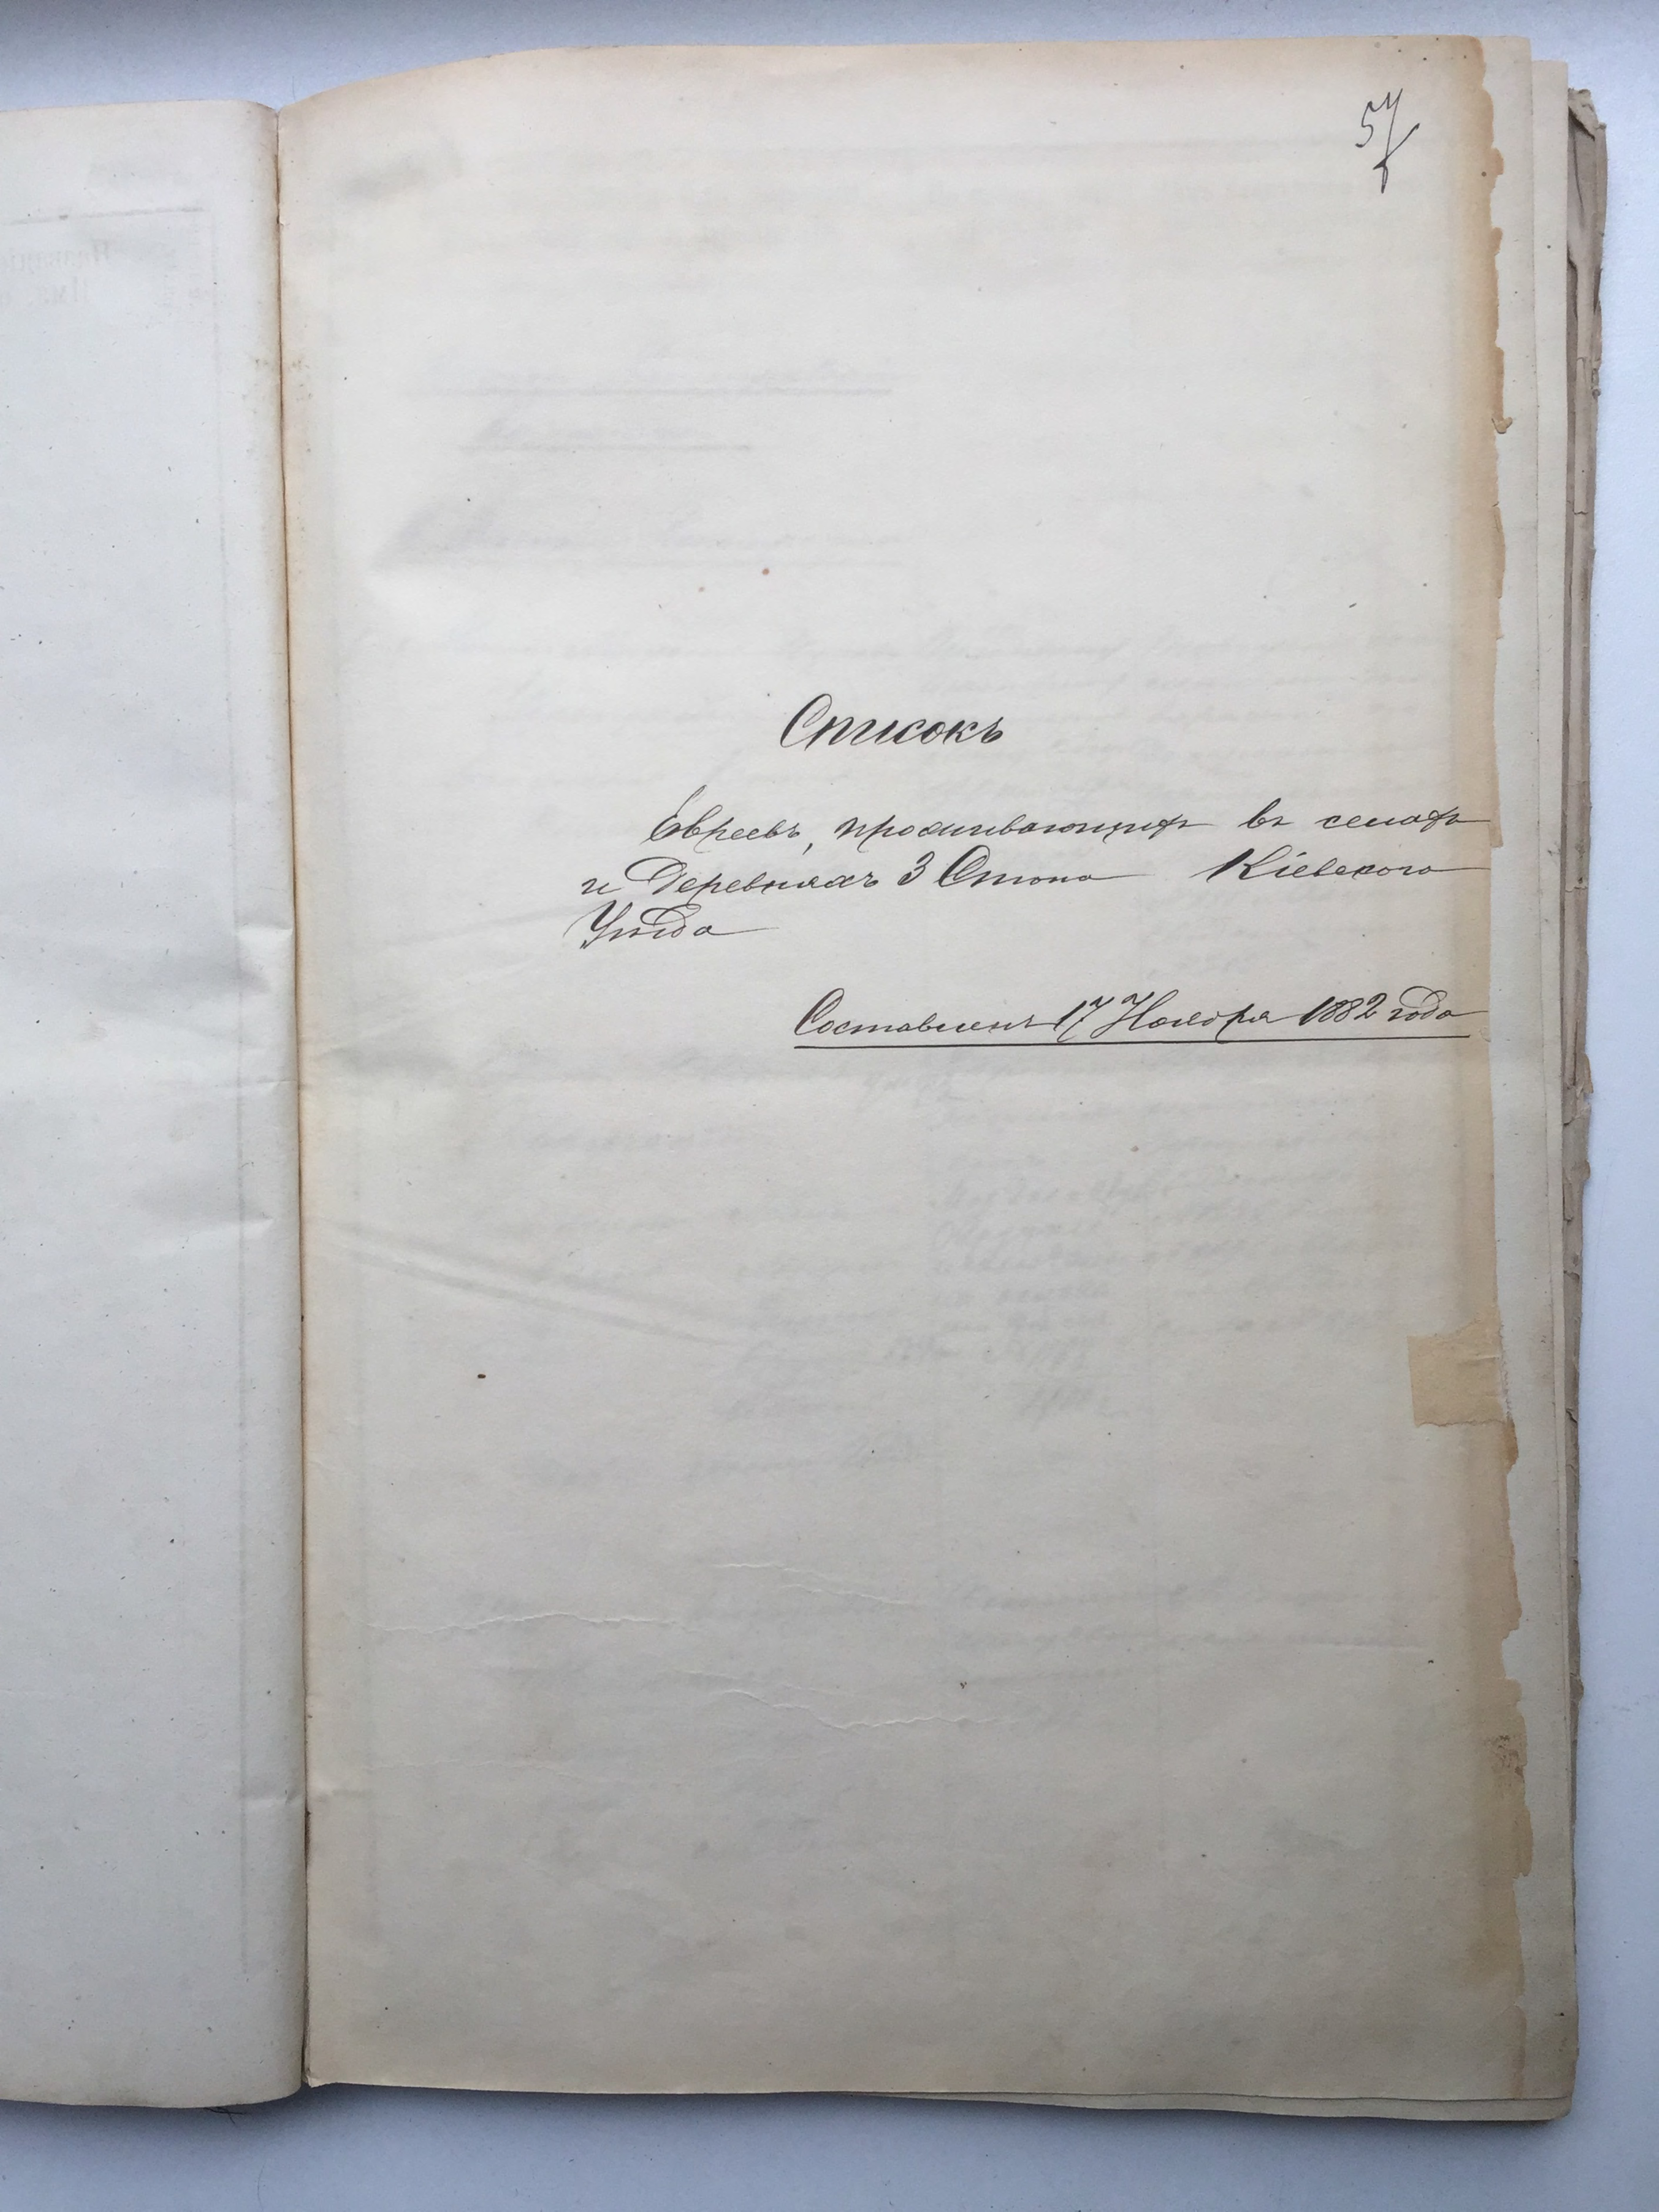 57
Списокъ
Евреевъ, проживающихъ въ селахъ
и деревняхъ 3 Стана Кіевскаго
Уѣзда
Составленъ 17 Ноября 1882 года